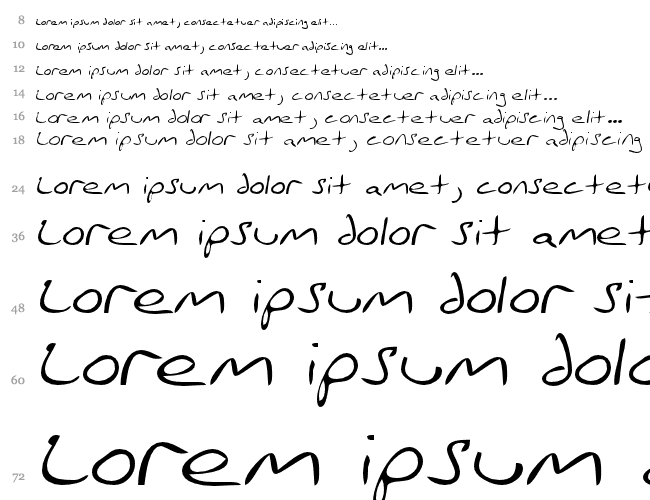 8 Lorem ipsum dolor sit amet, consectetuer adipiscing elit...
10 Lorem ipsum dolor sit amet, consectetuer adipiscing elit...
12 Lorem ipsum dolor sit amet, consectetuer adipiscing elit...
14 Lorem ipsum dolor sit amet, consectetuer adipiscing elit...
16 Lorem ipsum dolor sit amet, consectetuer adipiscing elit...
18 Lorem ipsum dolor sit amet, consectetuer adipiscing
24 Lorem ipsum dolor sit amet, consectetu
36 Lorem ipsum dolor sit amet
48 Lorem ipsum dolor sit
60 Lorem ipsum dolo
72 Lorem ipsum